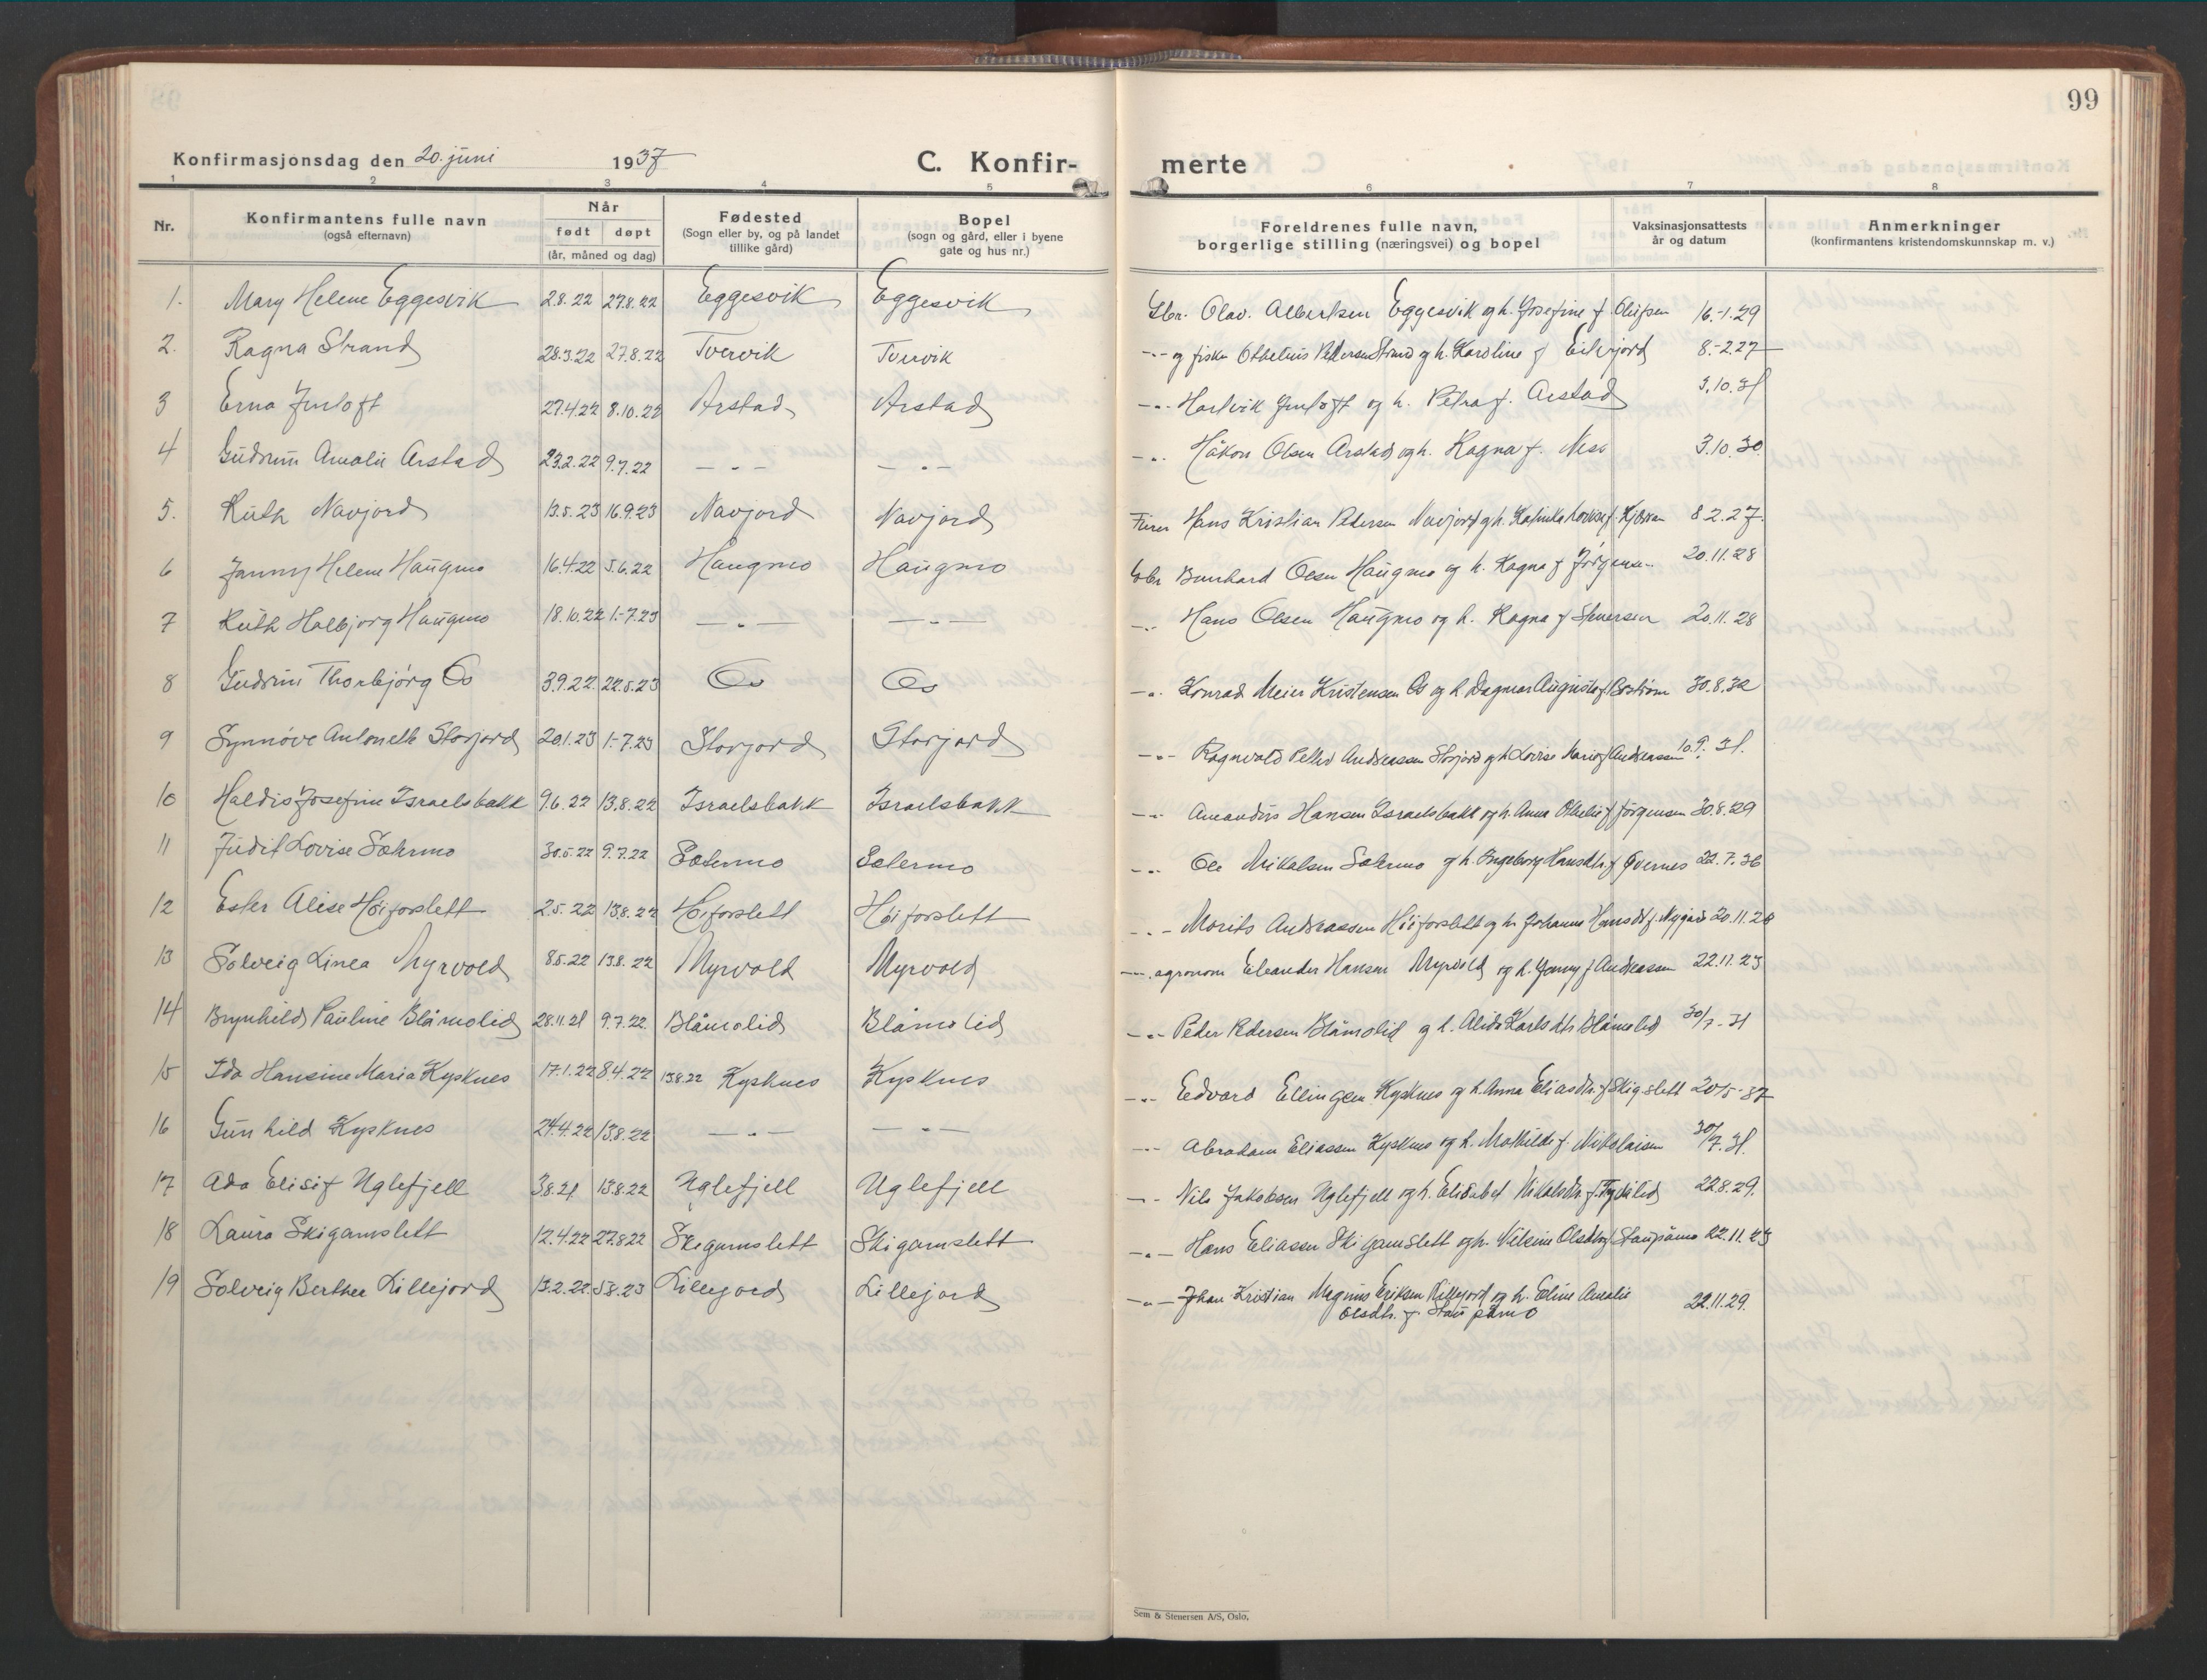 99
Konfirmasjonsdag den 20. juni 1937 C. Konfir- merte
1 2 3 4 5 6 7 8
Nr. Konfirmantens fulle navn (også efternavn) Når født døpt (år, måned og dag) Fødested (Sogn eller by, og på landet tillike gård) Bopel (sogn og gård, eller i byene gate og hus nr.) Foreldrenes fulle navn, borgerlige stilling (næringsvei) og bopel Vaksinasjonsattests år og datum Anmerkninger (konfirmantens kristendomskunnskap m. v.)
1. Mary Helene Eggesvik 2.8.22 27.8.22 Eggesvik Eggesvik Gbr. Olav Albertsen Eggesvik og h. Josefine f. Olufsen 16.-1.29
2. Ragna Strand 28.3.22 27.8.22 Tvervik Tvervik -"- og fisker Othelius Pedersen Strand og h. Karoline f. 8.-2.27
3 Erna 27.4.22 8.10.22 Arstad Arstad -"- Hartvik og h. Petra f. Arstad 3.10.31
4 Gudrun Amalie Arstad 23.2.22 9.7.22 -"- -"- -"- Håkon Olsen Arstad og h. Ragna f. Ness 3.10.30
5. Ruth Navjord 13.5.23 16.9.23 Navjord Navjord Hans Kristian Pedersen Navjord og h. Lovise f. 8.2.27
6 Jenny Helene Haugmo 16.4.22 5.6.22 Haugmo Haugmo Gbr Bernhard Olsen Haugmo og h. Ragna f Jörgensen 20.11.28
7 Ruth Halbjorg Haugmo 18.10.22 1.-7.23 -"- -"- -"- Hans Olsen Haugmo og h. Ragna f 20.11.28
8 Gudrun Thorbjørg Os 3.9.22 22.5.23 Os Os -"- Konrad Meier Kristensen Os og h. Dagmar Augusta f Boström 30.8.32
9 Synnöve Antonette Storjord 20.1.23 1.-7.23 Storjord Storjord -"- Ragnvald Peder Andreassen Storjord og h Lovise Marie f Andreassen 10.9. 31.
10 Haldis Josefine Israelsbakk 9.6.22 13.8.22 Israelsbakk Israelsbakk -"- Amandus Hansen Israelsbakk og h. Anna Othelie f Jörgensen 30.8.29
11 Judit Lovise Solermo 30.5.22 9.7.22 Solermo Solermo -"- Ole Mikalsen Solermo og h. Ingeborg Hansdtr. f 22.7.36
12 Ester Alise Höiforslett 2.5.22 13.8.22 Höiforslett Höiforslett -"- Morits Andreassen Höiforslett og h. Johanne Hansdt f. Nygård 20.11.28
13 Solveig Linea Myrvold 8.5.22 13.8.22 Myrvold Myrvold -"- agronom Eleander Hansen Myrvold og h. Jenny f Andreassen 22.11.23
14 Brynhild Pauline Blåmolid 28.11.21 9.7.22 Blåmolid Blåmolid -"- Peder Pedersen Blåmolid og h. Alida Karlsdtr Blåmolid 30/7-31
15 Ida Hansine Maria Kysknes 17.1.22 8.4.22 13.8.22 Kysknes Kysknes -"- Edvard Ellingsen Kysknes og h. Anna Eliasdtr. f Skigslett 20/5-37
16 Gunhild Kysknes 24.4.22 13.8.22 -"- -"- -"- Abraham Eliassen Kysknes og h. Mathilde f. Nikolaisen 30/7.31.
17 Ada Elisif Uglefjell 3.8.21 13.8.22 Uglefjell Uglefjell -"- Nils Jakobsen Uglefjell og h. Elisabet f. 22.8.29.
18 Laura Skigamslett 12.4.22 27.8.22 Skigamslett Skigamslett -"- Hans Eliassen Skigamslett og h. Nilsine Olsdtr f Staupåmo 22.11.23
19 Solveig Berthea Lillejord 13.2.22 5.8.23 Lillejord Lillejord -"- Johan Kristian Magnus Eriksen Lillejord og h. Eline Amalie
Olsdtr. f. Staupåmo 22.11.29.
Sem & Stenersen A/S, Oslo.